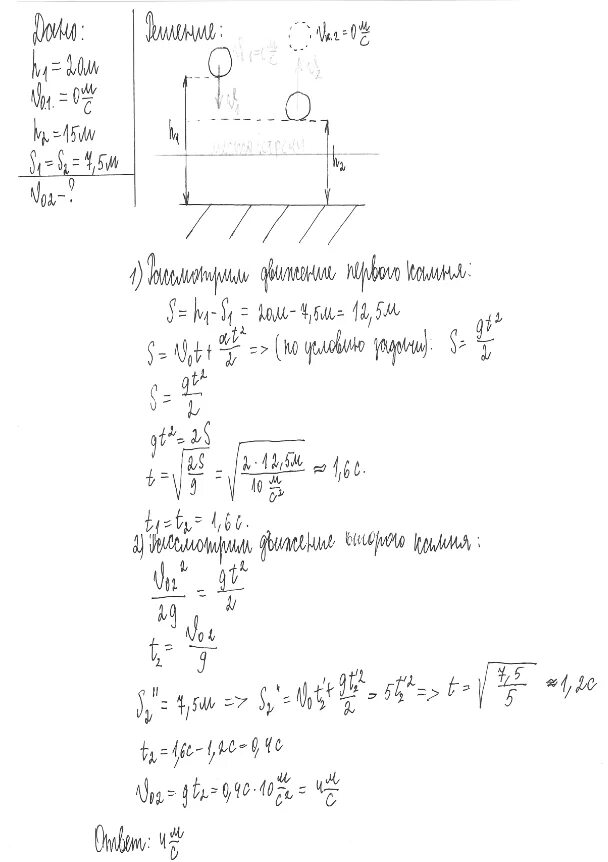 Дано:
h₁ = 20м
V₀₁ = 0 м/с
h₂ = 15м
S₁ = S₂ = 7,5м
V₀₂ - ?
Решение:
Vк.2 = 0 м/с
h₁
h₂
1) Рассмотрим движение первого камня:
S = h₁ - S₁ = 20м - 7,5м = 12,5м
S = V₀t + at²/2 => (по условию задачи): S = gt²/2
S = gt²/2
gt² = 2S
t = √(2S/g) = √(2·12,5м / 10 м/с²) ≈ 1,6с.
t₁ = t₂ = 1,6с.
2) Рассмотрим движение второго камня:
V₀₂²/2g = gt²/2
t₂ = V₀₂/g
S₂'' = 7,5м => S₂' = V₀t₂' + gt₂'²/2 = 5t₂'² => t = √(7,5/5) ≈ 1,2с
t₂ = 1,6с - 1,2с = 0,4с
V₀₂ = gt₂ = 0,4с · 10 м/с² = 4 м/с
Ответ: 4 м/с